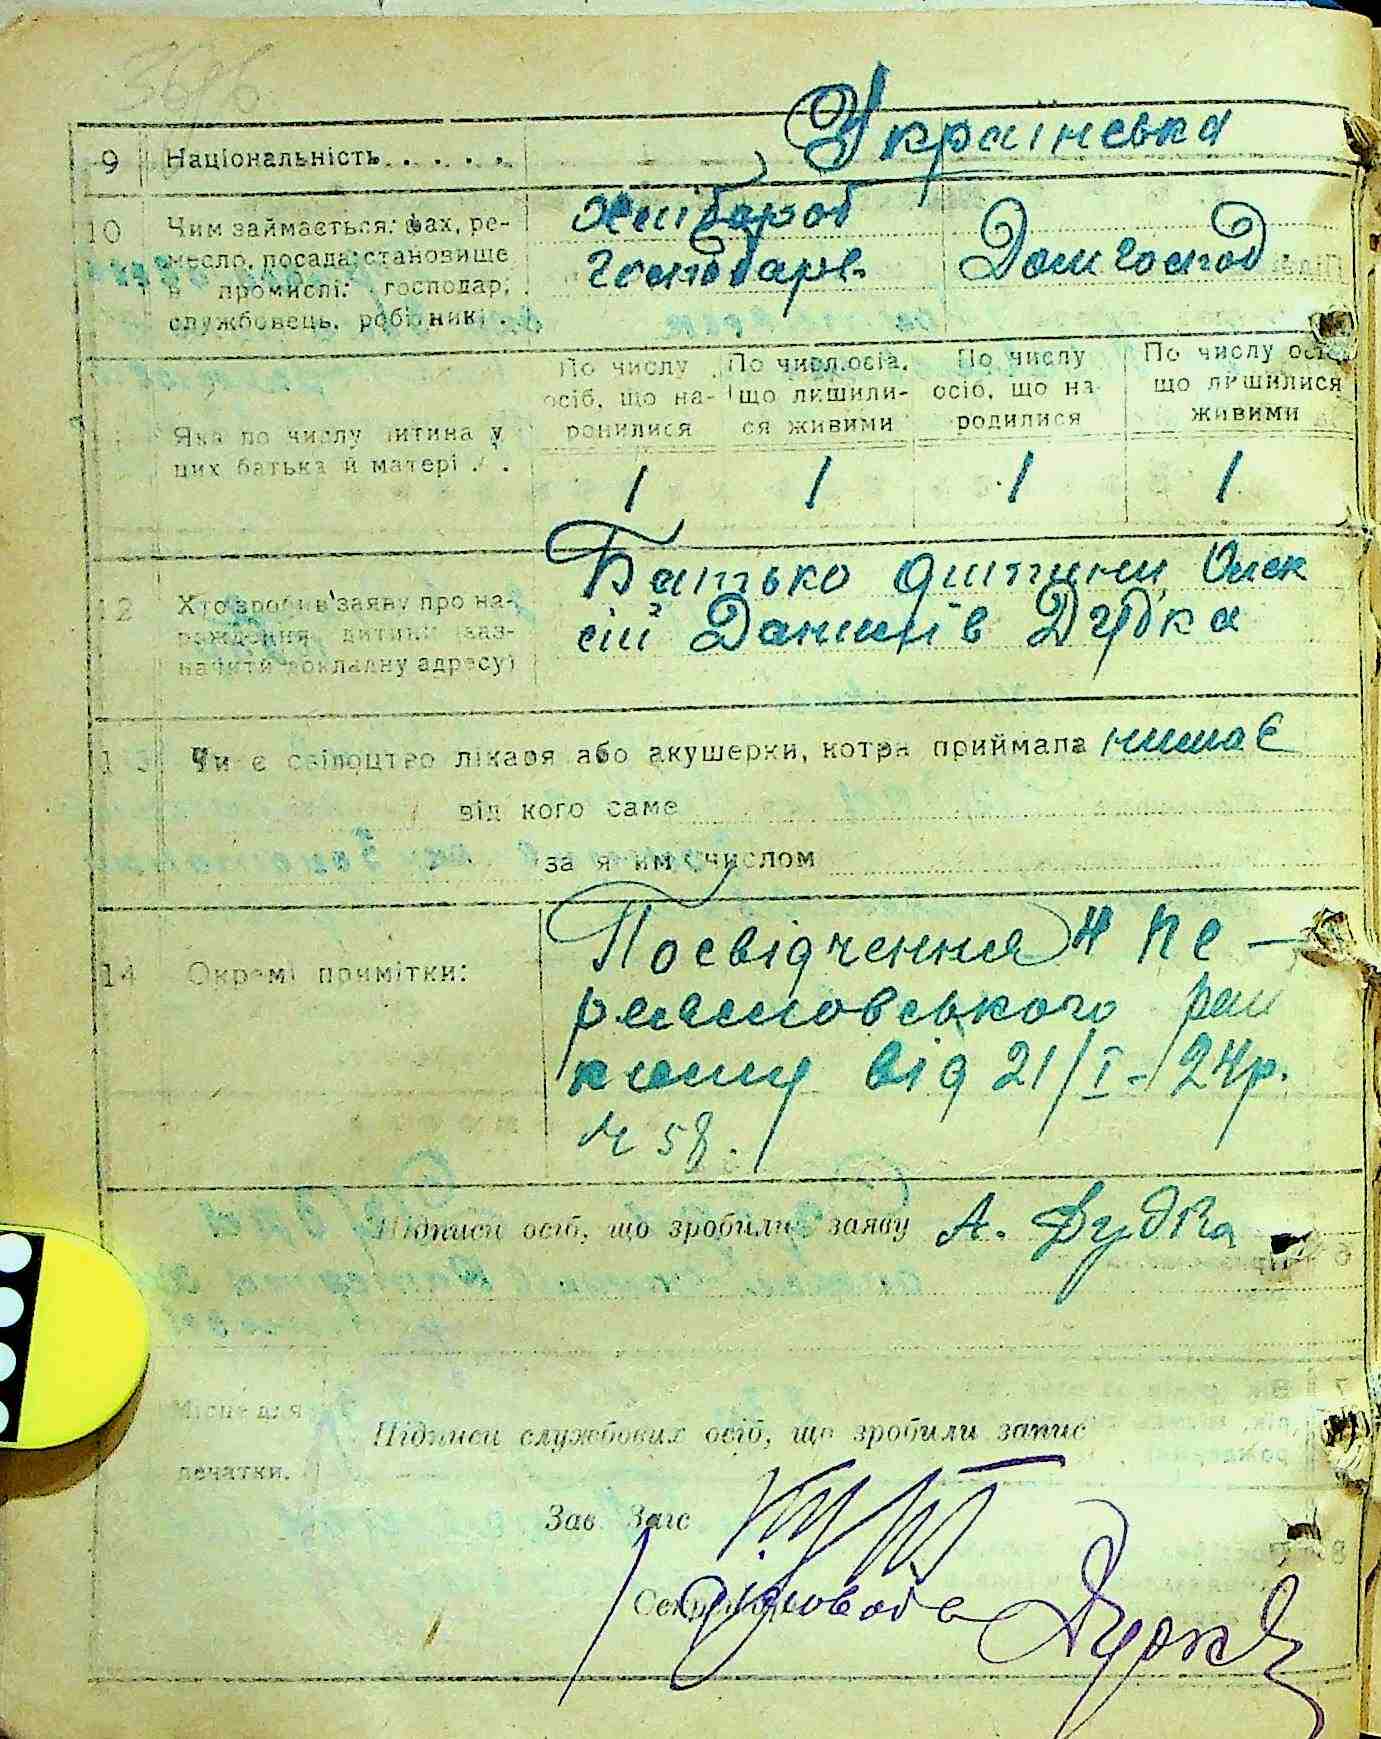 9 Національність . . . . . Українська
10 Чим займається: фах, ре-
месло, посада; становище
в промислі: господар,
службовець, робітник .
Хлібароб
Господарь
Дом господ
По числу осіб, що на-родилися
По числ.осіб, що лишили-ся живими
По числу осіб, що на-родилися
По числу осіб, що лишилися живими
Яка по числу дитина у
цих батька й матері . .
1 1 1 1
12 Хто зробив заяву про на-
рождення дитини (заз-
начити докладну адресу)
Батько дитини Олек
сій Данилів Дудка
13 Чи є свідоцтво лікаря або акушерки, котра приймала нимає
від кого саме
за яким числом
14 Окремі примітки:
Посвідчення Н Пе-
реяславського рай
кому від 21/I-24р.
№ 58.
Підписи осіб, що зробили заяву А. Дудка
Місце для
печатки.
Підписи службових осіб, що зробили запис
Зав. Загс
Секретар
Діловода Дудка